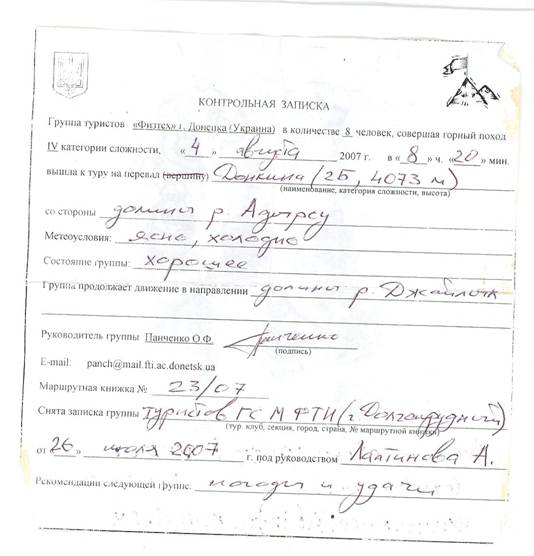 КОНТРОЛЬНАЯ ЗАПИСКА
Группа туристов «Физтех» г. Донецка (Украина) в количестве 8 человек, совершая горный поход
IV категории сложности, « 4 » августа 2007 г. в « 8 » ч. «20» мин.
вышла к туру на перевал (вершину) Донкина (2Б, 4073 м)
(наименование, категория сложности, высота)
со стороны долины р. Адырсу
Метеоусловия: ясно, холодно
Состояние группы: хорошее
Группа продолжает движение в направлении долины р. Джайлык
Руководитель группы Панченко О.Ф. Панченко
(подпись)
E-mail: panch@mail.fti.ac.donetsk.ua
Маршрутная книжка № 23/07
Снята записка группы туристов ГС МФТИ (г. Долгопрудный)
(тур. клуб, секция, город, страна, № маршрутной книжки)
от 26 » июля 2007 г. под руководством Лаптинова А.
Рекомендации следующей группе: погоды и удачи